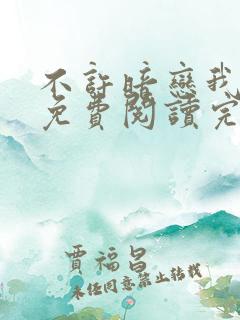 不許暗戀我
免費閱讀完
賈福昌
未經同意禁止轉載